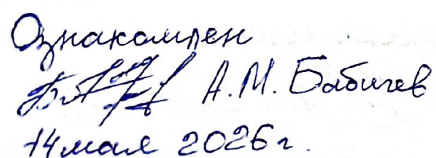 Ознакомлен
А.М. Бабичев
14 мая 2026 г.